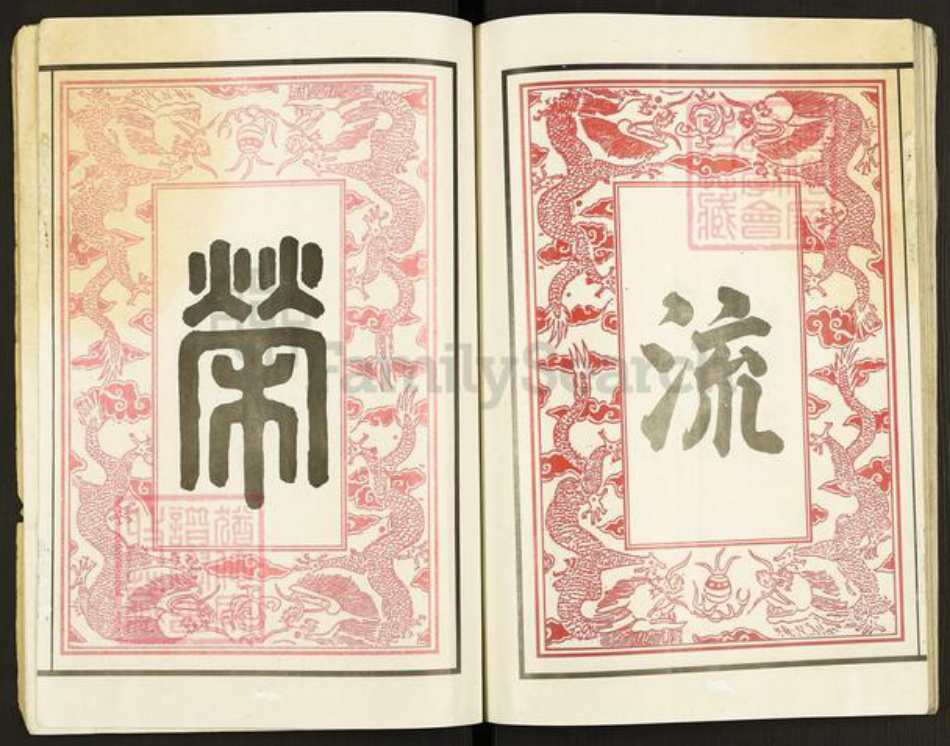 流
榮
FamilySearch